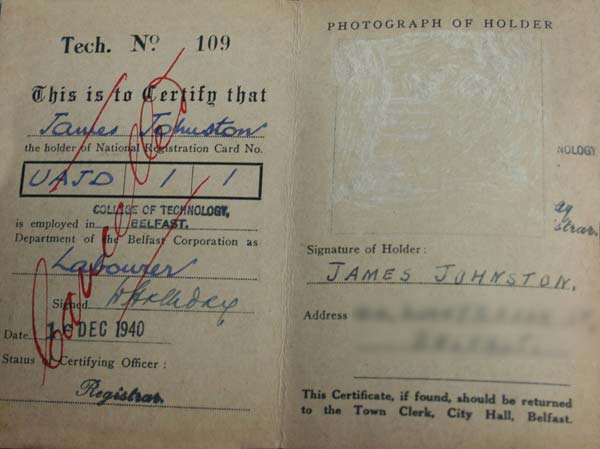 Tech. No 109
This is to Certify that
James Johnston
the holder of National Registration Card No.
UAJD 1 1
COLLEGE OF TECHNOLOGY,
is employed in BELFAST.
Department of the Belfast Corporation as
Labourer
Signed
Date 16 DEC 1940
Status of Certifying Officer :
Registrar.
Cancelled
PHOTOGRAPH OF HOLDER
NOLOGY
strar.
Signature of Holder :
JAMES JOHNSTON.
Address
This Certificate, if found, should be returned
to the Town Clerk, City Hall, Belfast.